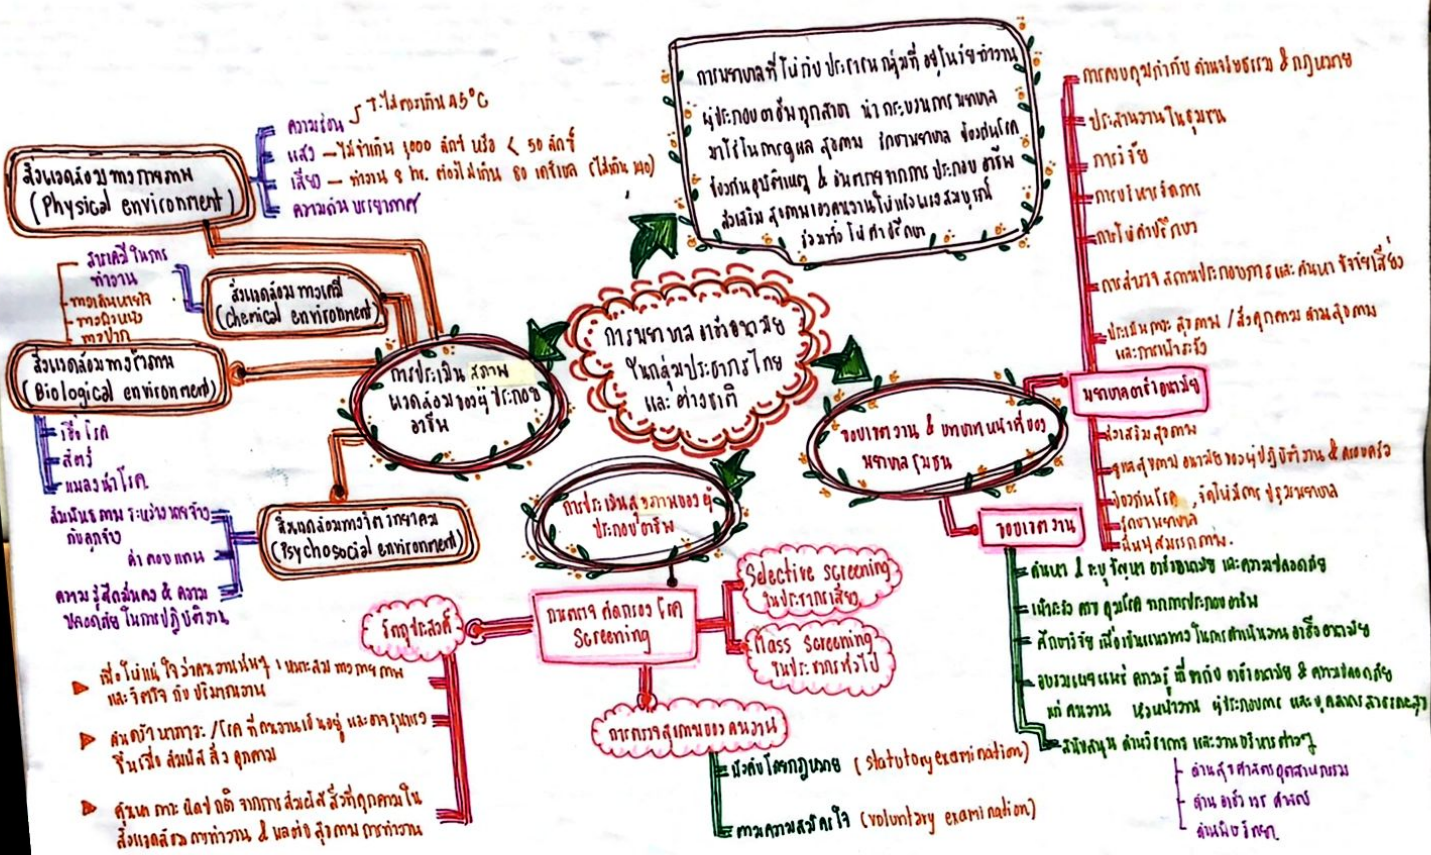 การพยาบาลที่ให้กับประชาชนกลุ่มที่อยู่ในวัยทำงาน
ผู้ประกอบอาชีพทุกสาขา นำกระบวนการพยาบาล
มาใช้ในการดูแลสุขภาพ รักษาพยาบาล ป้องกันโรค
ป้องกันอุบัติเหตุ & อันตรายจากการประกอบอาชีพ
ส่งเสริมสุขภาพของคนงานให้แข็งแรงสมบูรณ์
รวมทั้งให้คำปรึกษา
การพยาบาลอาชีวอนามัย
ในกลุ่มประชากรไทย
และต่างชาติ
การประเมินสภาพ
แวดล้อมของผู้ประกอบ
อาชีพ
สิ่งแวดล้อมทางกายภาพ
(Physical environment)
ความร้อน
T ไม่ควรเกิน 45°C
แสง – ไม่จำเกิน 1000 ลักซ์ หรือ < 50 ลักซ์
เสียง – ทำงาน 8 hr. ต้องไม่เกิน 80 เดซิเบล (ไม่เกิน 140)
ความดันบรรยากาศ
สิ่งแวดล้อมทางเคมี
(chemical environment)
สารเคมีในการ
ทำงาน
- ทางเดินหายใจ
- ทางผิวหนัง
- ทางปาก
สิ่งแวดล้อมทางชีวภาพ
(Biological environment)
เชื้อโรค
สัตว์
แมลงนำโรค
สิ่งแวดล้อมทางจิตวิทยาสังคม
(Psychosocial environment)
สัมพันธภาพระหว่างนายจ้าง
กับลูกจ้าง
ค่าตอบแทน
ความรู้สึกมั่นคง & ความ
ปลอดภัยในการปฏิบัติงาน
การประเมินสุขภาพของผู้
ประกอบอาชีพ
การตรวจคัดกรองโรค
Screening
Selective screening
ในประชากรเสี่ยง
Mass screening
ในประชากรทั่วไป
วัตถุประสงค์
เพื่อให้แน่ใจว่าคนงานนั้นๆ เหมาะสมทางกายภาพ
และจิตใจกับปริมาณงาน
ค้นคว้าหาภาวะ/โรคที่คนงานเป็นอยู่และอาจรุนแรง
ขึ้นเมื่อสัมผัสสิ่งคุกคาม
ค้นหาภาวะผิดปกติจากการสัมผัสสิ่งที่คุกคามใน
สิ่งแวดล้อมการทำงาน & ผลต่อสุขภาพการทำงาน
การตรวจสุขภาพของคนงาน
บังคับโดยกฎหมาย (statutory examination)
ตามความสมัครใจ (voluntary examination)
ขอบเขตงาน & บทบาทหน้าที่ของ
พยาบาลชุมชน
พยาบาลอาชีวอนามัย
การควบคุมกำกับด้านจริยธรรม & กฎหมาย
ประสานงานในชุมชน
การวิจัย
การบริหารจัดการ
การให้คำปรึกษา
การสำรวจสถานประกอบการและค้นหาปัจจัยเสี่ยง
ประเมินภาวะสุขภาพ/สิ่งคุกคามด้านสุขภาพ
และการเฝ้าระวัง
ส่งเสริมสุขภาพ
ดูแลสุขภาพอนามัยของผู้ปฏิบัติงาน & ครอบครัว
ป้องกันโรค จัดให้มีการปฐมพยาบาล
รักษาพยาบาล
ฟื้นฟูสมรรถภาพ
ขอบเขตงาน
ค้นหา & ระบุปัญหาอาชีวอนามัยและความปลอดภัย
เฝ้าระวังควบคุมโรคจากการประกอบอาชีพ
ศึกษาวิจัยเพื่อเป็นแนวทางในการดำเนินงานอาชีวอนามัย
อบรมเผยแพร่ความรู้เกี่ยวกับอาชีวอนามัย & ความปลอดภัย
แก่คนงาน หัวหน้างาน ผู้ประกอบการ และบุคลากรสาธารณสุข
สนับสนุนด้านวิชาการและงานบริหารต่างๆ
- ด้านสุขศาสตร์อุตสาหกรรม
- ด้านอาชีวเวชศาสตร์
- ด้านพิษวิทยา